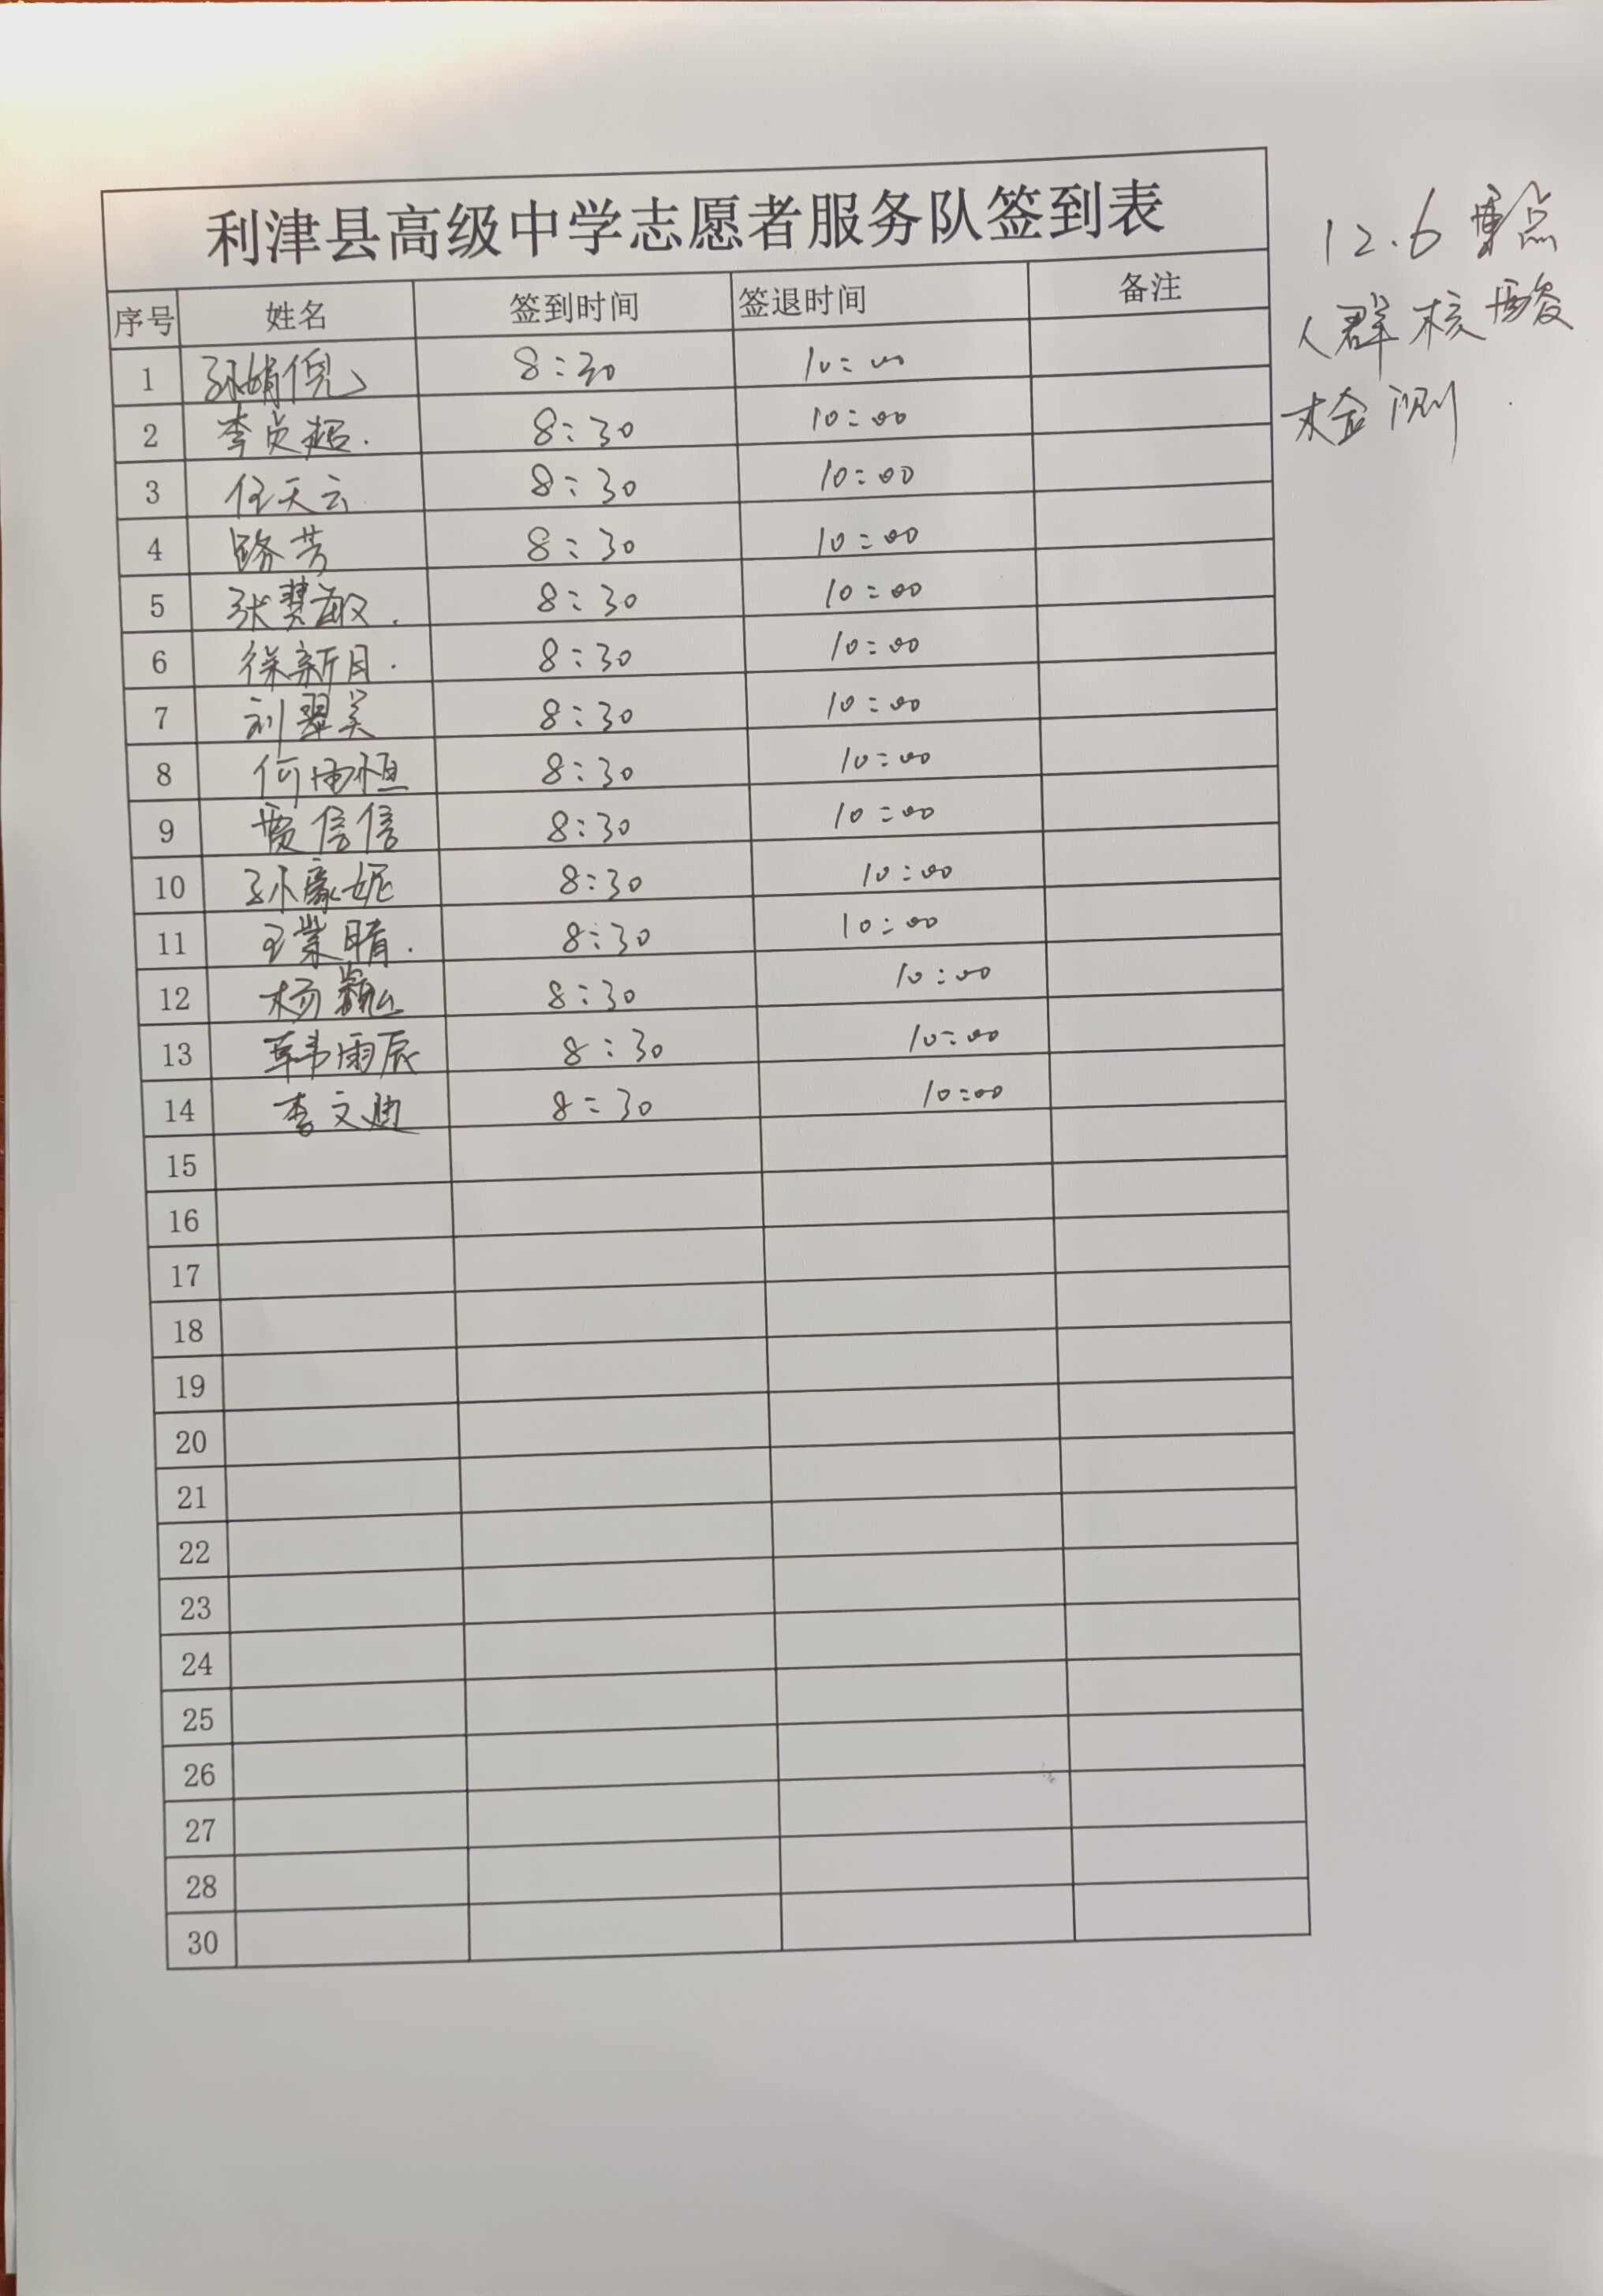 利津县高级中学志愿者服务队签到表
序号 姓名 签到时间 签退时间 备注
1 孙娟倪 8:30 10:00
2 李贞超. 8:30 10:00
3 任天云 8:30 10:00
4 路芳 8:30 10:00
5 张慧敏. 8:30 10:00
6 徐新月. 8:30 10:00
7 刘翠吴 8:30 10:00
8 何 恒 8:30 10:00
9 贾信信 8:30 10:00
10 孙豪妮 8:30 10:00
11 王業晴. 8:30 10:00
12 杨巍 8:30 10:00
13 韩雨辰 8:30 10:00
14 李文 8:30 10:00
15
16
17
18
19
20
21
22
23
24
25
26
27
28
30
12.6 重点
人群核酸
检测.